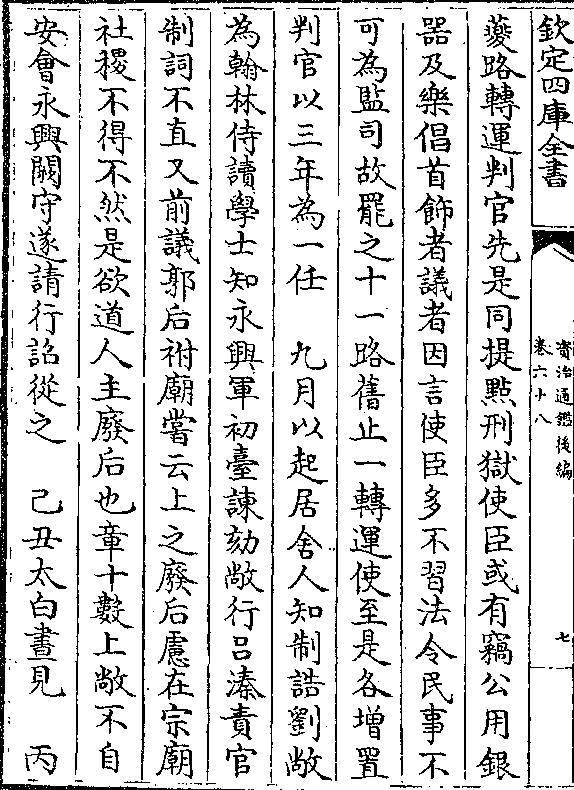 欽定四庫全書
資治通鑑後編
卷六十八
七
夔路轉運判官先是同提點刑獄使臣或有竊公用銀
器及樂倡首飾者議者因言使臣多不習法令民事不
可為監司故罷之十一路舊止一轉運使至是各增置
判官以三年為一任　九月以起居舍人知制誥劉敞
為翰林侍讀學士知永興軍初臺諫劾敞行呂溱責官
制詞不直又前議郭后祔廟嘗云上之廢后慮在宗廟
社稷不得不然是欲道人主廢后也章十數上敞不自
安會永興闕守遂請行詔從之　己丑太白晝見　丙